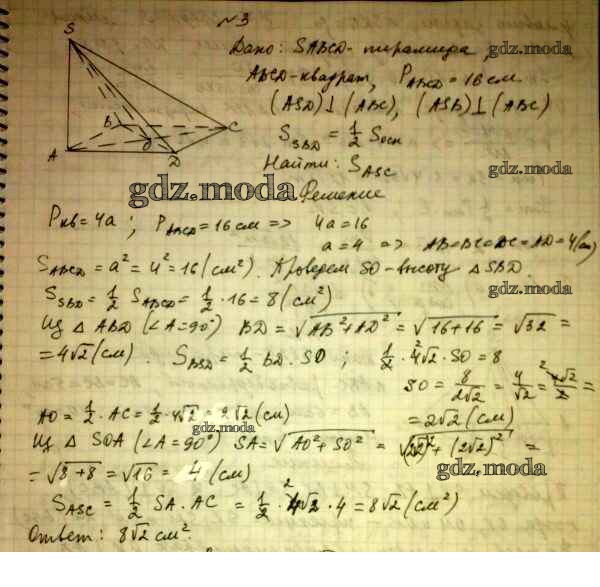 №3
S
Дано: SABCD - пирамида,
gdz.moda
ABCD - квадрат, P_ABCD = 16 см
(ASD)⊥(ABC), (ASB)⊥(ABC)
B
C
S_SBD = 1/2 Sосн
O
A
D
Найти: S_ASC
gdz.moda
gdz.moda
Решение
Pкв = 4a; P_ABCD = 16 см => 4a = 16
a = 4 => AB=BC=DC=AD=4(см)
S_ABCD = a² = 4² = 16 (см²). Проведем SO - высоту △SBD.
gdz.moda
S_SBD = 1/2 S_ABCD = 1/2 · 16 = 8 (см²)
Из △ABD (∠A=90°) BD = √AB²+AD² = √16+16 = √32 =
= 4√2 (см). S_BSD = 1/2 BD · SO; 1/2 · 4√2 · SO = 8
SO = 8/2√2 = 4/√2 = 4√2/2 =
AO = 1/2 · AC = 1/2 · 4√2 = 2√2 (см)
= 2√2 (см)
gdz.moda
Из △SOA (∠A=90°) SA = √AO²+SO² = √(2√2)²+(2√2)² =
= √8+8 = √16 = 4 (см)
gdz.moda
S_ASC = 1/2 SA · AC = 1/2 · 4√2 · 4 = 8√2 (см²)
Ответ: 8√2 см².